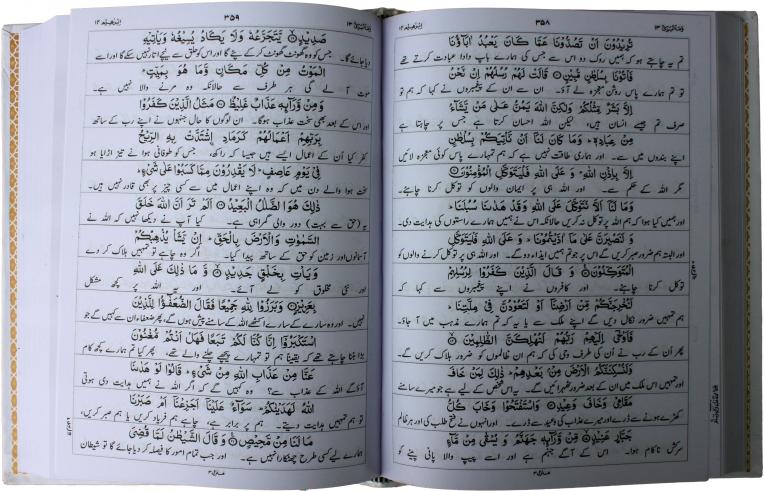 وما ابرئ ۱۳ ۳۵۸ ابراهیم ۱۴
تُرِيْدُوْنَ اَنْ تَصُدُّوْنَا عَمَّا كَانَ يَعْبُدُ اٰبَآؤُنَا
تم یہ چاہتے ہو کہ ہمیں روک دو اس سے جس کی ہمارے باپ دادا عبادت کرتے تھے
فَاْتُوْنَا بِسُلْطٰنٍ مُّبِيْنٍ۝ قَالَتْ لَهُمْ رُسُلُهُمْ اِنْ نَّحْنُ
تو تم ہمارے پاس روشن معجزہ لے آؤ۔ ان سے ان کے پیغمبروں نے کہا کہ ہم تو
اِلَّا بَشَرٌ مِّثْلُكُمْ وَلٰكِنَّ اللّٰهَ يَمُنُّ عَلٰى مَنْ يَّشَآءُ
صرف تم جیسے انسان ہیں، لیکن اللہ احسان کرتا ہے جس پر چاہتا ہے
مِنْ عِبَادِهٖ ؕ وَمَا كَانَ لَنَآ اَنْ نَّاْتِيَكُمْ بِسُلْطٰنٍ
اپنے بندوں میں سے۔ اور ہماری طاقت نہیں ہے کہ ہم تمہارے پاس کوئی معجزہ لائیں
اِلَّا بِاِذْنِ اللّٰهِ ؕ وَ عَلَى اللّٰهِ فَلْيَتَوَكَّلِ الْمُؤْمِنُوْنَ۝
مگر اللہ کے حکم سے۔ اور اللہ ہی پر ایمان والوں کو توکل کرنا چاہئے۔
وَمَا لَنَآ اَلَّا نَتَوَكَّلَ عَلَى اللّٰهِ وَقَدْ هَدٰىنَا سُبُلَنَا ؕ
اور ہمیں کیا ہوا کہ ہم اللہ پر توکل نہ کریں حالانکہ اس نے ہمیں ہمارے راستوں کی ہدایت دی۔
وَ لَنَصْبِرَنَّ عَلٰى مَآ اٰذَيْتُمُوْنَا ؕ وَ عَلَى اللّٰهِ فَلْيَتَوَكَّلِ
اور البتہ ہم ضرور صبر کریں گے اس پر جو تم ہمیں ایذاء دو گے۔ اور اللہ ہی پر توکل کرنے والوں کو
الْمُتَوَكِّلُوْنَ۝ وَ قَالَ الَّذِيْنَ كَفَرُوْا لِرُسُلِهِمْ
توکل کرنا چاہئے۔ اور کافروں نے اپنے پیغمبروں سے کہا کہ
لَنُخْرِجَنَّكُمْ مِّنْ اَرْضِنَآ اَوْ لَتَعُوْدُنَّ فِيْ مِلَّتِنَا ؕ
ہم تمہیں ضرور نکال دیں گے اپنے ملک سے یا یہ کہ تم ہمارے مذہب میں آ جاؤ۔
فَاَوْحٰٓى اِلَيْهِمْ رَبُّهُمْ لَنُهْلِكَنَّ الظّٰلِمِيْنَ۝
پھر اُن کے رب نے اُن کی طرف وحی کی کہ ہم ان ظالموں کو ضرور ہلاک کریں گے۔
وَلَنُسْكِنَنَّكُمُ الْاَرْضَ مِنْۢ بَعْدِهِمْ ؕ ذٰلِكَ لِمَنْ خَافَ
اور تمہیں اس ملک میں ان کے بعد ضرور ٹھہرائیں گے۔ یہ اس شخص کے لیے ہے جو میرے سامنے
مَقَامِيْ وَخَافَ وَعِيْدِ۝ وَاسْتَفْتَحُوْا وَخَابَ كُلُّ
کھڑے ہونے سے ڈرے اور میرے عذاب کی وعید سے ڈرے۔ اور انہوں نے فتح طلب کی اور ہر ظالم
جَبَّارٍ عَنِيْدٍ۝ مِّنْ وَّرَآئِهٖ جَهَنَّمُ وَ يُسْقٰى مِنْ مَّآءٍ
سرکش ناکام ہوا۔ اس کے آگے جہنم ہے اور اسے پیپ والا پانی پینے کو
وما ابرئ ۱۳ ۳۵۹ ابراهیم ۱۴
صَدِيْدٍ۝ يَّتَجَرَّعُهٗ وَلَا يَكَادُ يُسِيْغُهٗ وَيَاْتِيْهِ
دیا جائے گا۔ جس کو وہ گھونٹ گھونٹ کر کے پئے گا اور اس کو حلق سے نیچے اتار نہیں سکے گا اور اسے
الْمَوْتُ مِنْ كُلِّ مَكَانٍ وَّمَا هُوَ بِمَيِّتٍ ؕ
موت آ لے گی ہر طرف سے حالانکہ وہ مرنے والا نہیں ہے۔
وَ مِنْ وَّرَآئِهٖ عَذَابٌ غَلِيْظٌ۝ مَثَلُ الَّذِيْنَ كَفَرُوْا
اور اس کے بعد بھی سخت عذاب ہوگا۔ ان لوگوں کا حال جنہوں نے اپنے رب کے ساتھ
بِرَبِّهِمْ اَعْمَالُهُمْ كَرَمَادِ ِۨاشْتَدَّتْ بِهِ الرِّيْحُ
کفر کیا اُن کے اعمال ایسے ہیں جیسا کہ راکھ، جس کو طوفانی ہوا نے تیز اڑایا ہو
فِيْ يَوْمٍ عَاصِفٍ ؕ لَا يَقْدِرُوْنَ مِمَّا كَسَبُوْا عَلٰى شَيْءٍ ؕ
سخت ہوا والے دن میں کہ وہ اپنے اعمال میں سے کسی چیز پر بھی قادر نہیں ہیں۔
ذٰلِكَ هُوَ الضَّلٰلُ الْبَعِيْدُ۝ اَلَمْ تَرَ اَنَّ اللّٰهَ خَلَقَ
یہ (حق سے بہت) دور والی گمراہی ہے۔ کیا آپ نے دیکھا نہیں کہ اللہ نے
السَّمٰوٰتِ وَالْاَرْضَ بِالْحَقِّ ؕ اِنْ يَّشَاْ يُذْهِبْكُمْ
آسمانوں اور زمین کو حق کے ساتھ پیدا کیا۔ اگر وہ چاہے تو تمہیں ہلاک کر دے
وَ يَاْتِ بِخَلْقٍ جَدِيْدٍ۝ وَّ مَا ذٰلِكَ عَلَى اللّٰهِ
اور نئی مخلوق کو لے آئے۔ اور یہ اللہ پر کچھ مشکل
بِعَزِيْزٍ۝ وَبَرَزُوْا لِلّٰهِ جَمِيْعًا فَقَالَ الضُّعَفٰٓؤُا لِلَّذِيْنَ
نہیں۔ اور وہ سارے کے سارے اکٹھے اللہ کے سامنے پیش ہوں گے، پھر ضعفاء ان سے کہیں گے جو
اسْتَكْبَرُوْٓا اِنَّا كُنَّا لَكُمْ تَبَعًا فَهَلْ اَنْتُمْ مُّغْنُوْنَ
بڑا بننا چاہتے تھے کہ یقیناً ہم تو تمہارے پیچھے چلنے والے تھے، پھر کیا تم ہمارے کچھ کام
عَنَّا مِنْ عَذَابِ اللّٰهِ مِنْ شَيْءٍ ؕ قَالُوْا لَوْ هَدٰىنَا
آؤ گے اللہ کے عذاب سے؟ وہ کہیں گے کہ اگر اللہ نے ہمیں ہدایت دی ہوتی
اللّٰهُ لَهَدَيْنٰكُمْ ؕ سَوَآءٌ عَلَيْنَآ اَجَزِعْنَآ اَمْ صَبَرْنَا
تو ہم تمہیں ہدایت دیتے۔ ہم پر برابر ہے، چاہے ہم فریاد کریں یا ہم صبر کریں،
مَا لَنَا مِنْ مَّحِيْصٍ۝ وَ قَالَ الشَّيْطٰنُ لَمَّا قُضِيَ
ہمارے لیے کسی طرح چھٹکارا نہیں ہے۔ اور جب تمام امور کا فیصلہ کر دیا جائے گا تو شیطان